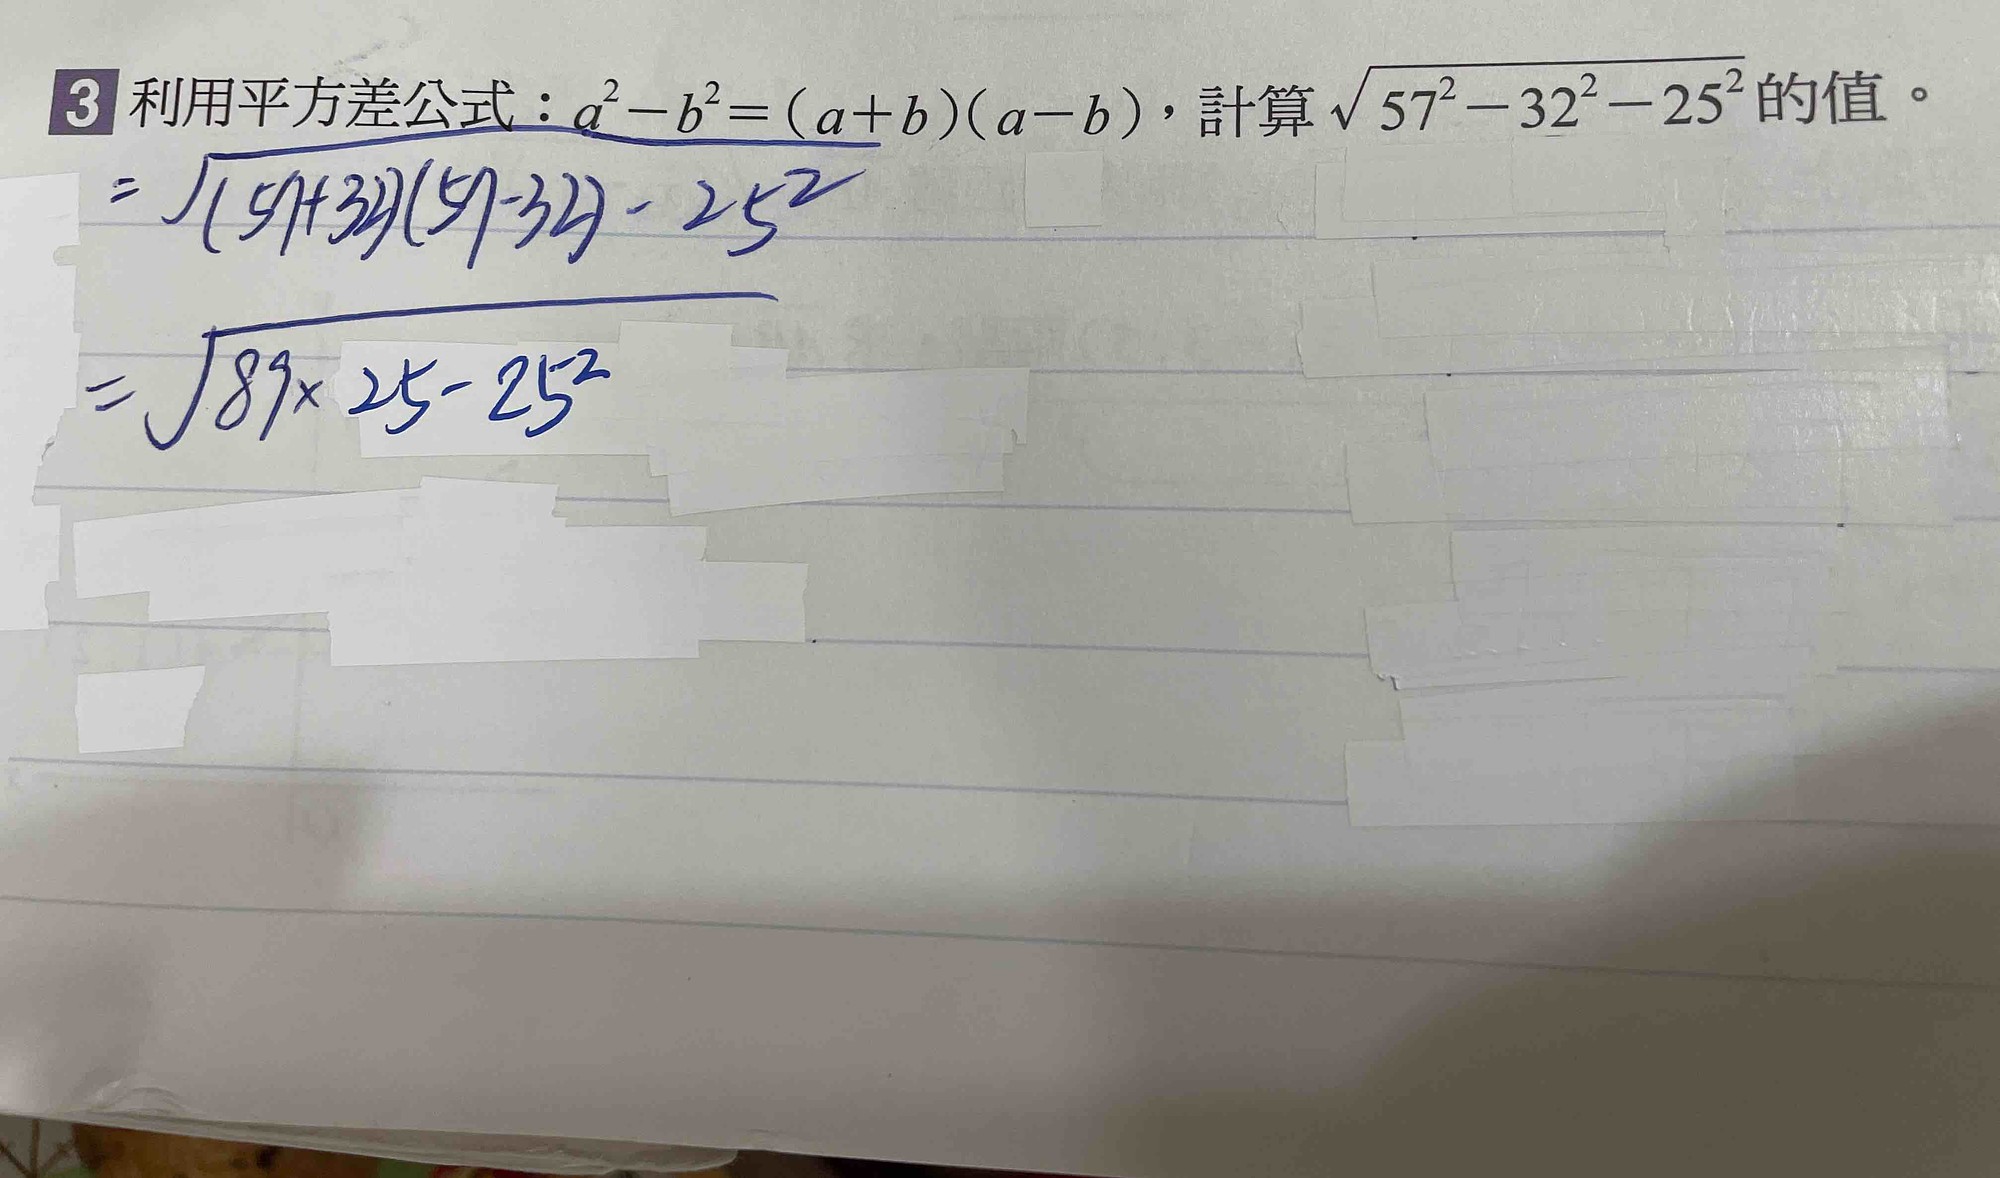 3 利用平方差公式：a²－b²＝(a＋b)(a－b)，計算√57²－32²－25²的值。
=√(57+32)(57-32) - 25²
=√89×25-25²